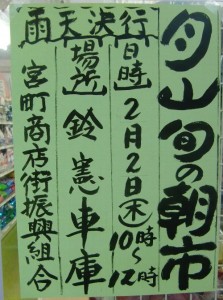 月山旬の朝市
【日時】2月2日(木)10時〜12時
【場所】鈴憲車庫
雨天決行
宮町商店街振興組合